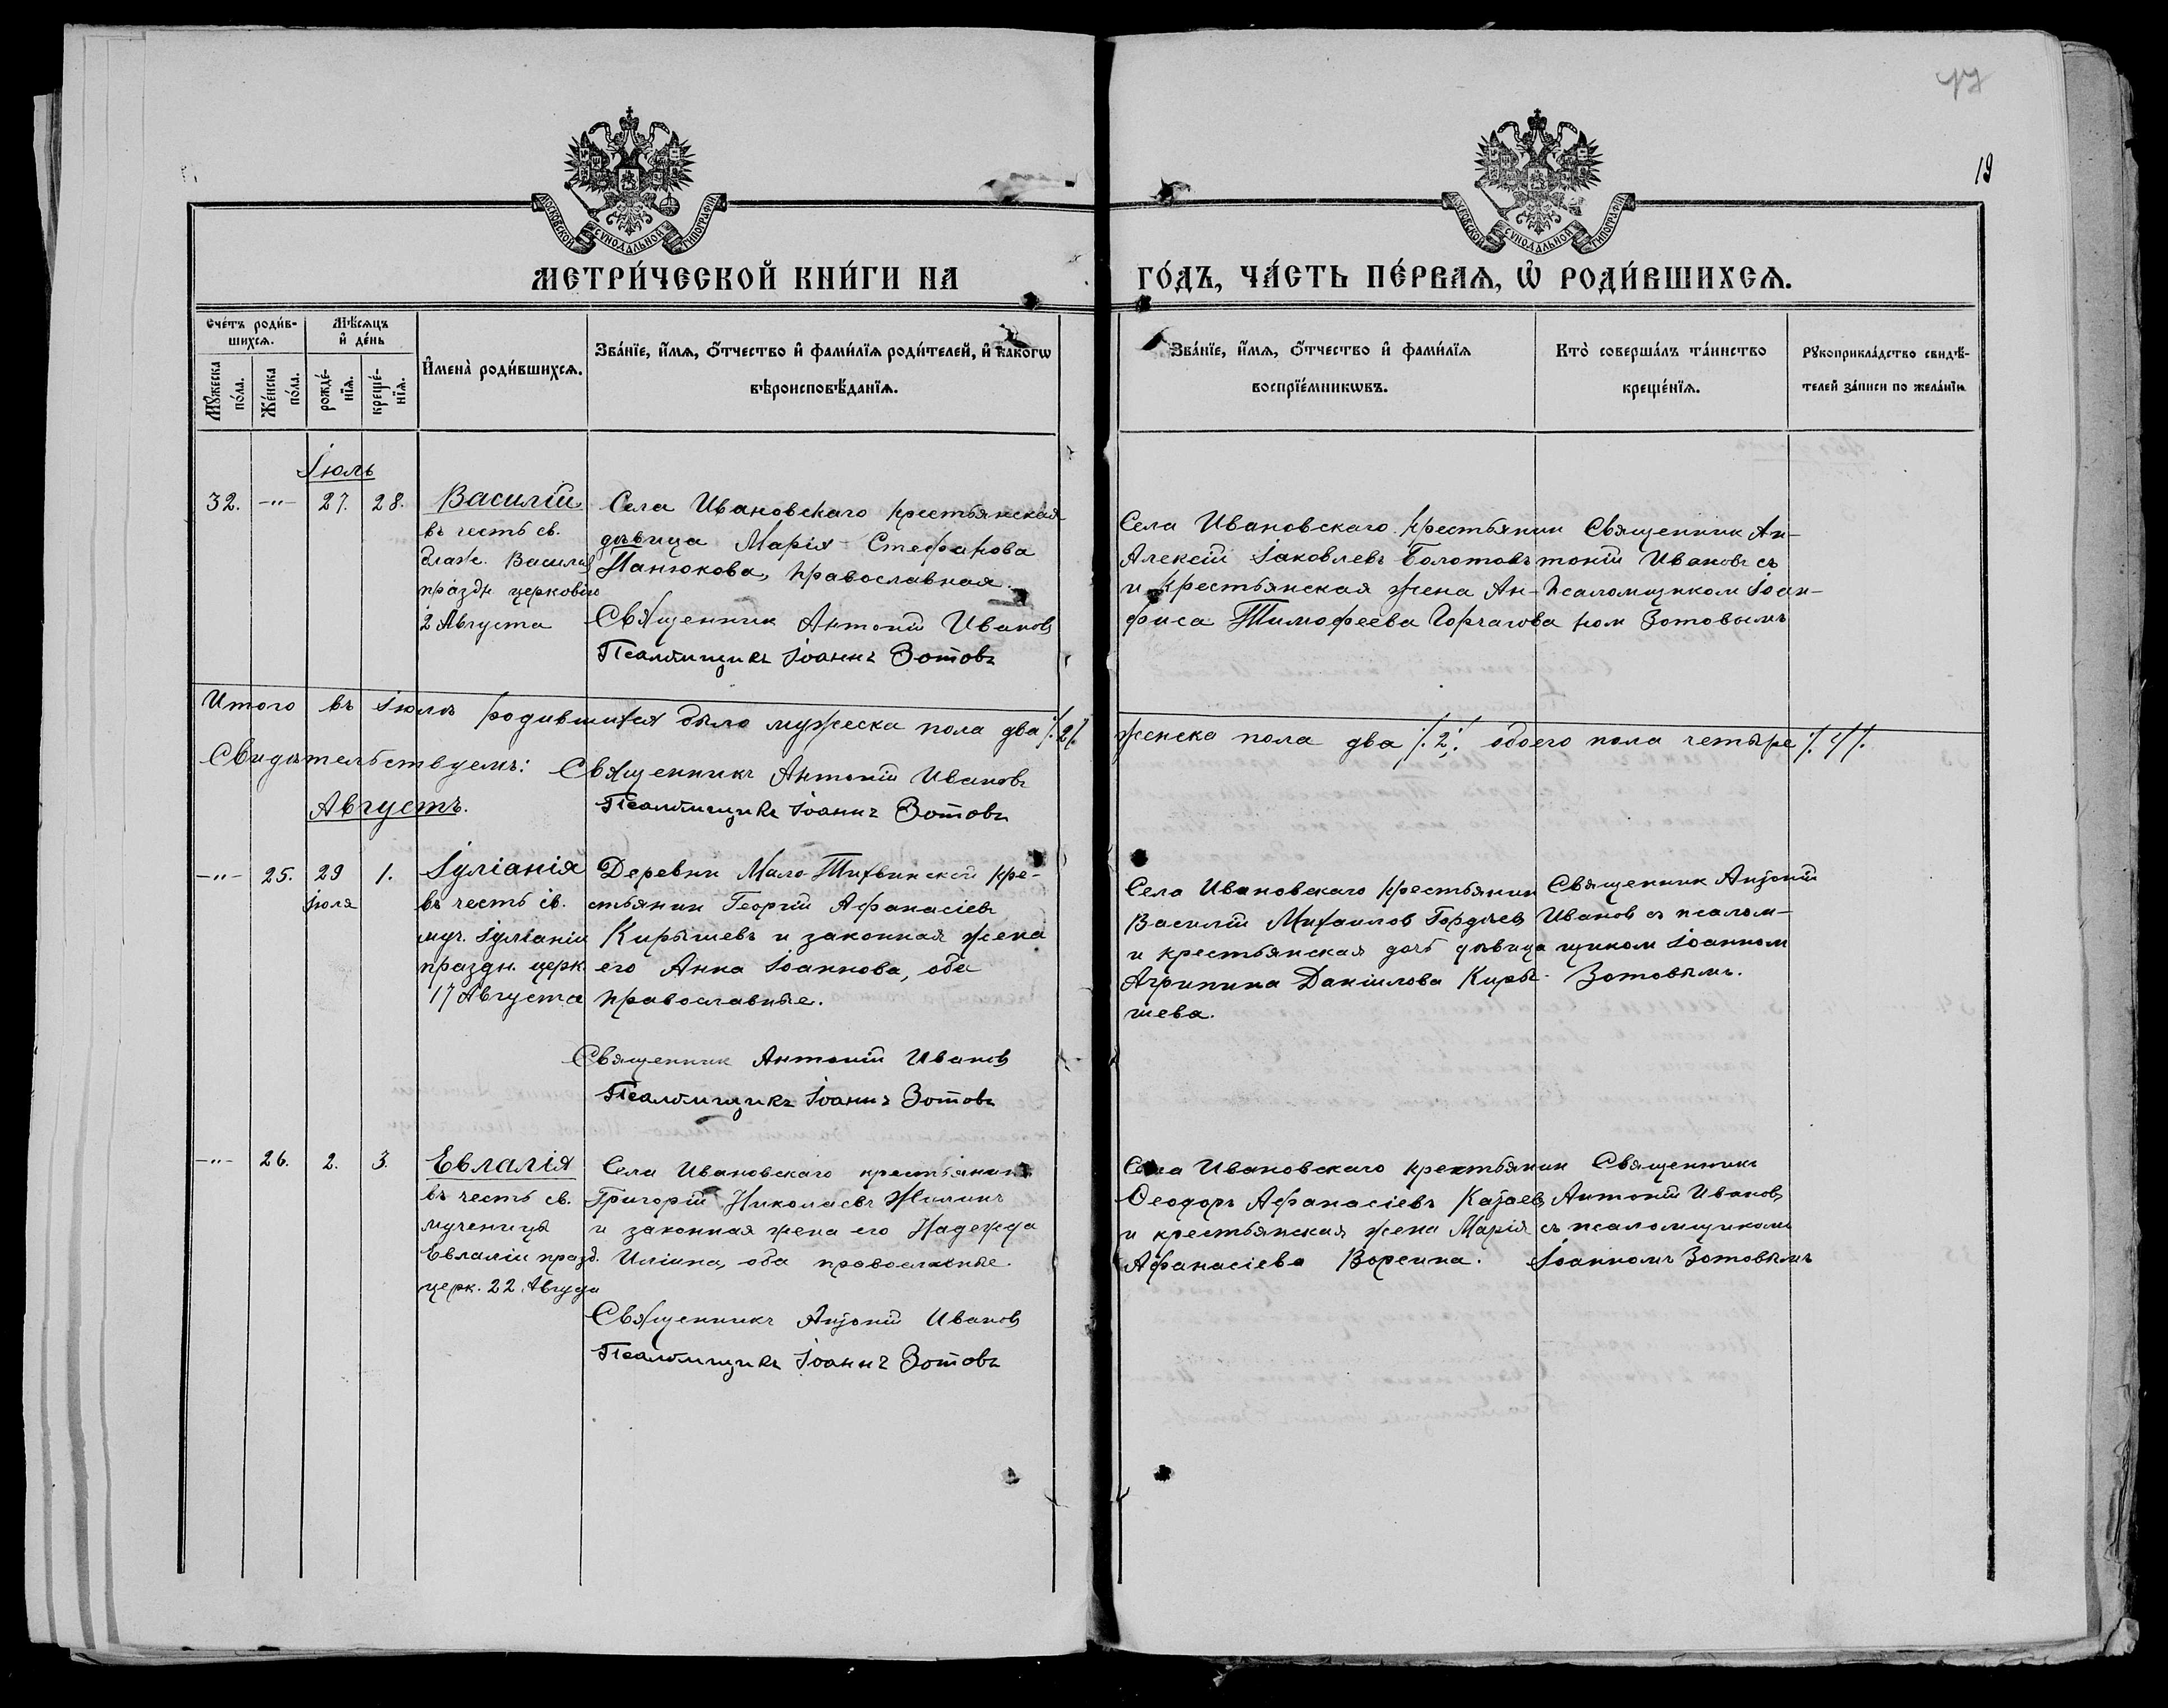 47
19
МОСКОВСКОЙ СѴНОДАЛЬНОЙ ТИПОГРАФІИ
МОСКОВСКОЙ СѴНОДАЛЬНОЙ ТИПОГРАФІИ
МЕТРИ́ЧЕСКОЙ КНИ́ГИ НА
ГО́ДЪ, ЧА́СТЬ ПЕ́РВАЯ, Ѡ҆ РОДИ́ВШИХСЯ.
Сче́тъ роди́в-
шихся.
Мꙋжеска по́ла.
Же́нска по́ла.
Мѣ́сяцъ
и҆ де́нь
рожде́-
нїя.
креще́-
нїя.
И҆мена̀ роди́вшихся.
Зва́нїе, и҆́мя, ѻ҆́тчество и҆ фами́лїя роди́телей, и҆ како́гѡ
вѣроисповѣ́данїя.
Зва́нїе, и҆́мя, ѻ҆́тчество и҆ фами́лїя
воспрїе́мникѡвъ.
Кто̀ соверша́лъ та́инство
креще́нїя.
Рꙋкоприкла́дство свидѣ́-
телей за́писи по жела́нїю
Іюль
32. -"- 27. 28.
Василій
въ честь св.
блаж. Василія
праздн церковію
2 Августа
Села Ивановскаго крестьянская
дѣвица Марія Стефанова
Панюкова, православная.
Священник Антоній Иванов
Псаломщикъ Іоаннъ Зотовъ
Села Ивановскаго крестьянин
Алексій Іаковлевъ Болотовъ
и крестьянская жена Ан-
фиса Тимофеева Горчагова
Священник Ан-
тоній Ивановъ съ
псаломщиком Іоан-
ном Зотовымъ
Итого въ Іюлѣ родившихся было мужеска пола два /.2/.
женска пола два /.2/. обоего пола четыре /.4/.
Свидѣтельствуемъ: Священникъ Антоній Ивановъ
Псаломщикъ Іоаннъ Зотовъ
Августъ.
-"- 25. 29 1.
Іюля
Іуліанія
въ честь св.
муч. Іуліаніи
праздн. церк.
17 Августа
Деревни Мало-Тихвинской кре-
стьянин Георгій Афанасіевъ
Кирышевъ и законная жена
его Анна Іоаннова, оба
православные.
Священник Антоній Иванов
Псаломщикъ Іоаннъ Зотовъ
Села Ивановскаго крестьянин
Василій Михаилов Гордѣев
и крестьянская дочь дѣвица
Агрипина Даніилова Киры-
шева.
Священник Антоній
Иванов съ псалом-
щиком Іоанном
Зотовымъ.
-"- 26. 2. 3.
Евлалія
въ честь св.
мученицы
Евлаліи празд.
церк. 22 Августа
Села Ивановскаго крестьянинъ
Григорій Николаевъ Жилинъ
и законная жена его Надежда
Иліина, оба православные.
Священникъ Антоній Иванов
Псаломщикъ Іоаннъ Зотовъ
Села Ивановскаго крестьянин
Ѳеодоръ Афанасіевъ Катаев
и крестьянская жена Марія
Афанасіева Ворсина.
Священникъ
Антоній Иванов
съ псаломщиком
Іоанномъ Зотовымъ